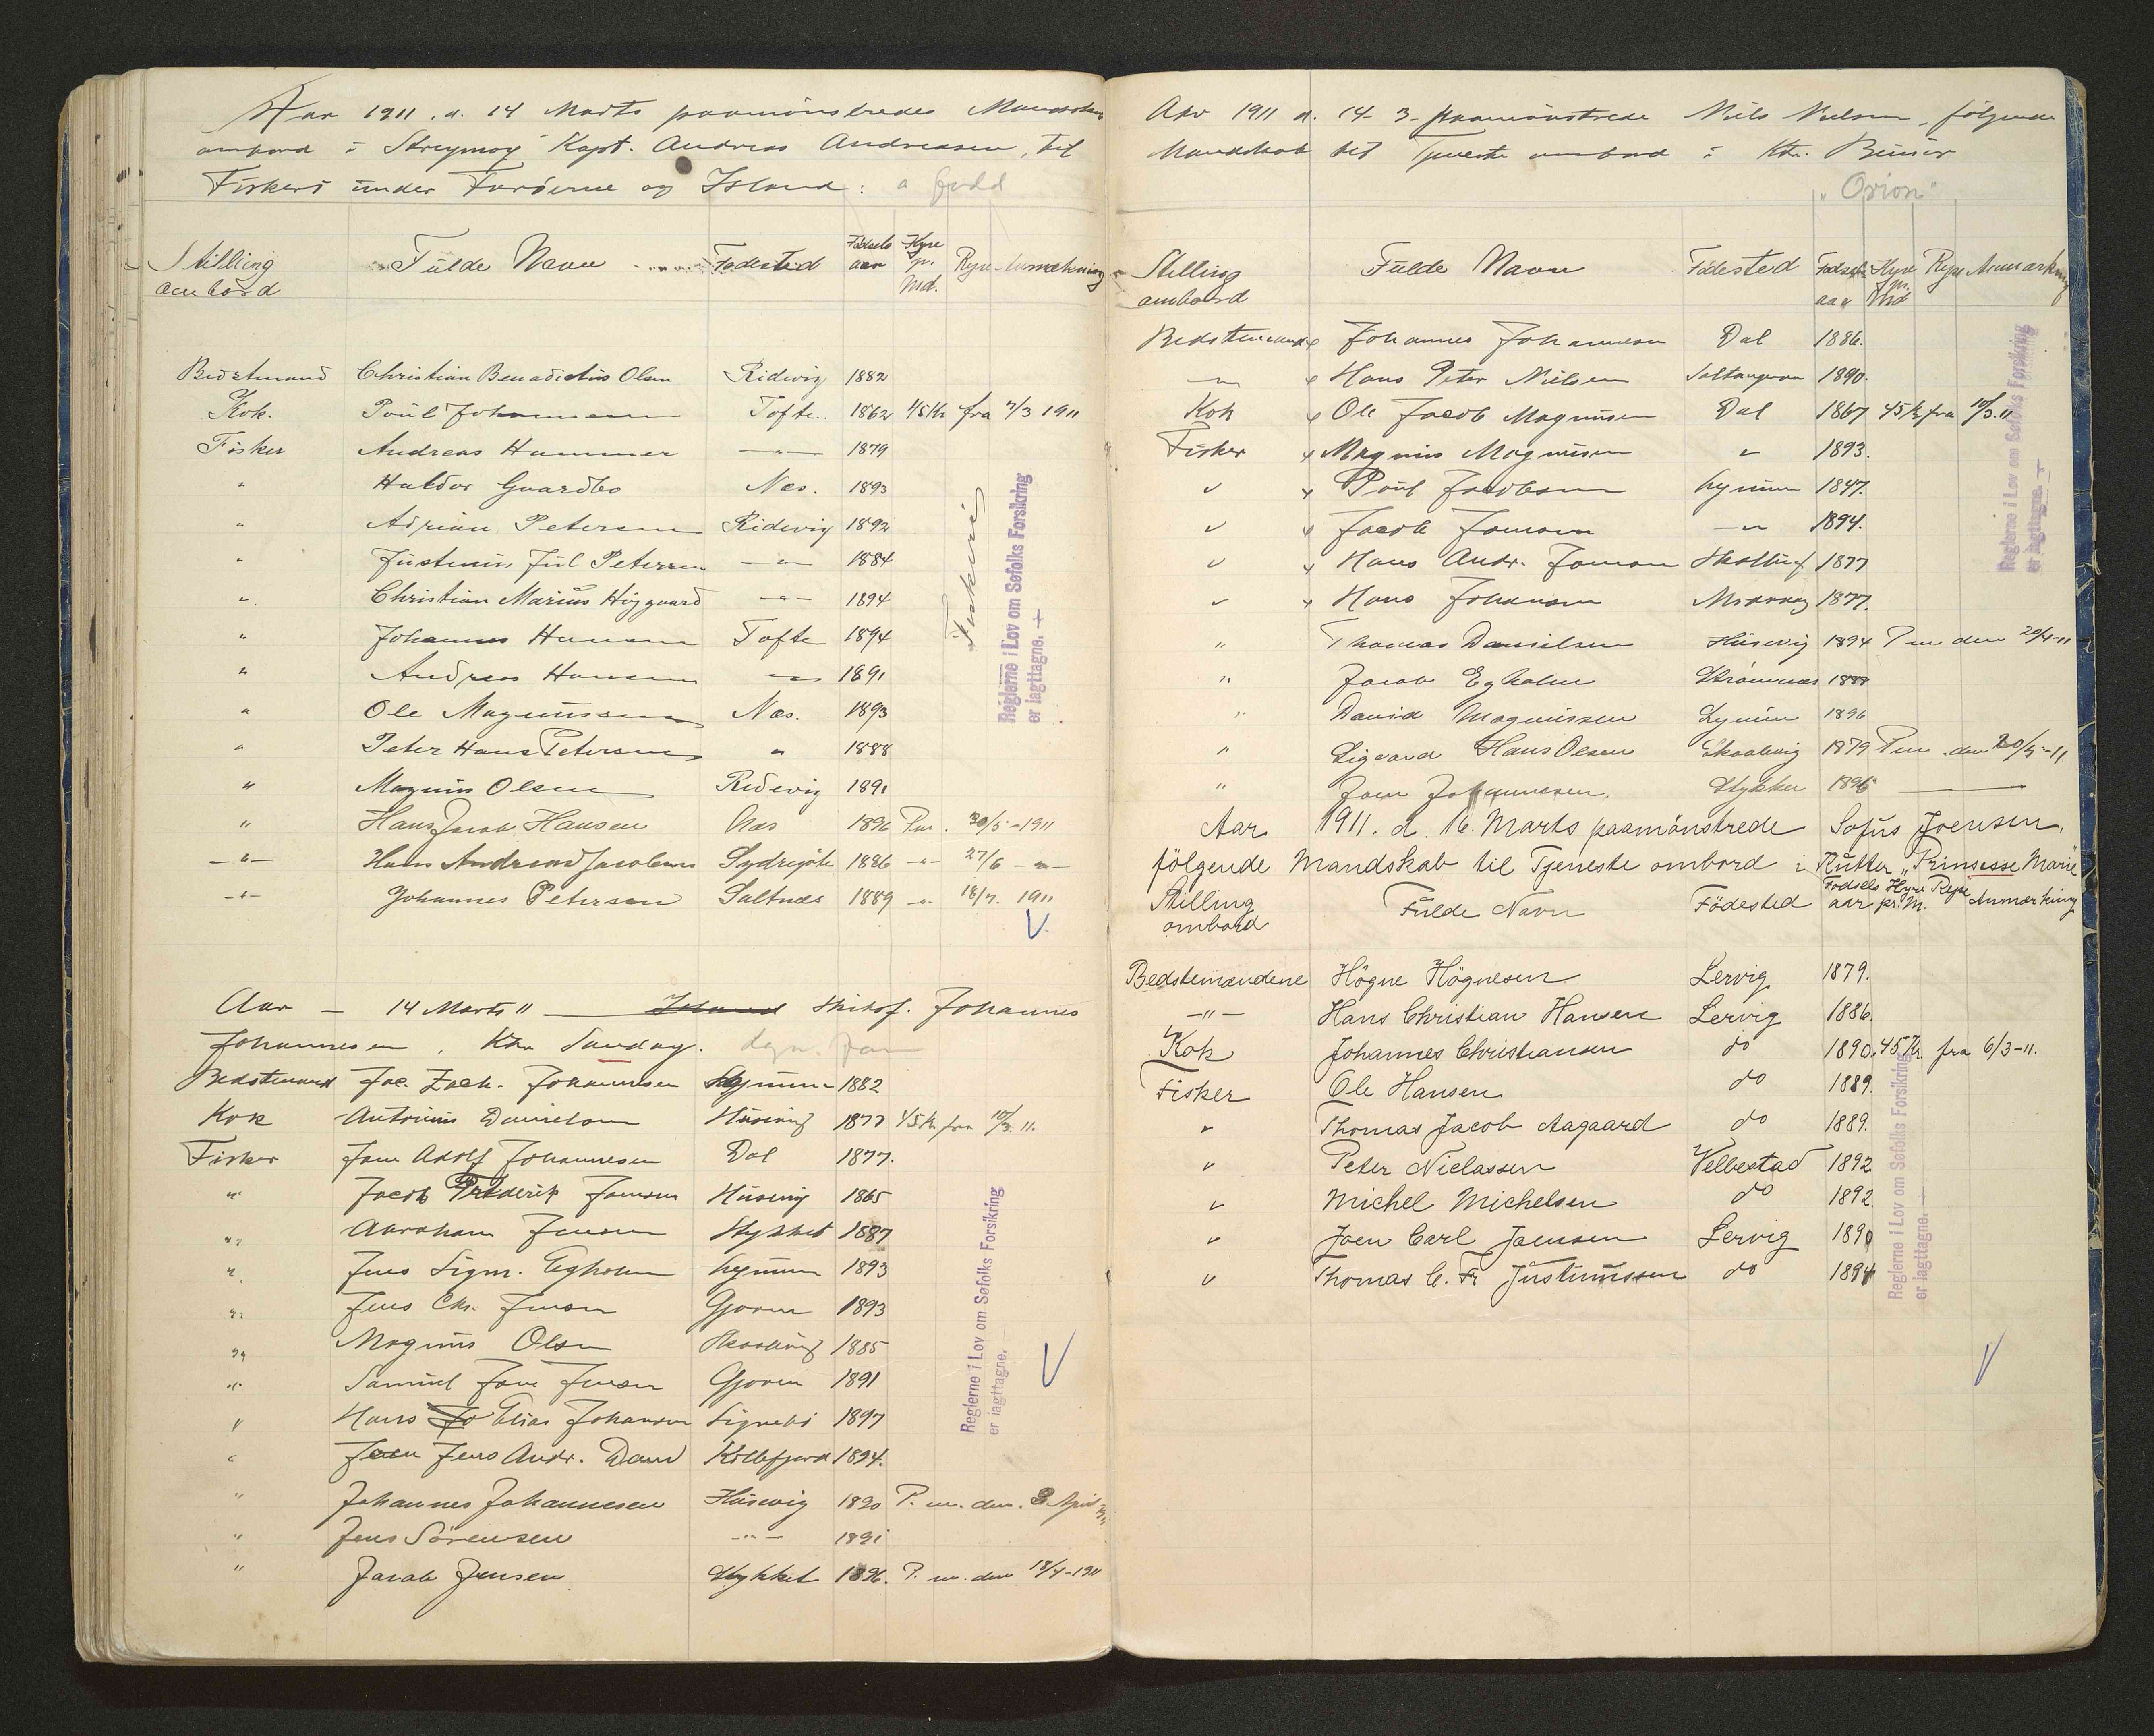 Aar 1911. d. 14 Marts paamönstredes Mandskab
ombord i Streymoy Kapt. Andreas Andreasen, til
Fiskeri under Færöerne og Island:
Stilling ombord Fulde Navn Födested Födsels aar Hyre pr. Md. Rejse Anmærkning
Bedstmand Christian Benadictus Olsen Ridevig 1882
Kok. Poul Johannesen Tofte. 1862 45 Kr fra 7/3 1911
Fisker Andreas Hammer -"- 1879
" Haldor Gaardbo Næs. 1893
" Adrian Petersen Ridevig 1892
" Justinus Jul Petersen -"- 1884
" Christian Marius Höjgaard -"- 1894
" Johannes Hansen Tofte 1894
" Andreas Hansen -"- 1891
" Ole Magnussen Næs. 1893
" Peter Hans Petersen " 1888
" Magnus Olsen Ridevig 1891
" Hans Jacob Hansen Næs 1896 Pm. 30/5-1911
-"- Hans Andreas Jacobsen Sydregöte 1886 -"- 27/6 -"-
-"- Johannes Petersen Saltnes 1889 -"- 18/7. 1911
Fiskeri
Reglerne i Lov om Søfolks Forsikring
er iagttagne.
Aar - 14 Marts 11 Island Skibsf. Johannes
Johannesen, Ktr Sandoy.
Bedstemand Joe. Zach. Johannesen Hymum 1882
Kok Antonius Danielsen Husevig 1877 45 Kr fra 10/3. 11.
Fisker Joen Adolf Johannesen Dal 1877.
" Jacob Frederik Joensen Husevig 1865
" Abraham Jensen Stykket 1887
" Jens Sigm. Egholm Lynum 1893
" Jens Chr. Jensen Gjoven 1893
" Magnus Olsen Skaalevig 1885
" Samuel Joen Jensen Gjoven 1891
" Hans Jo Elias Johansen Signebö 1897
" Joen Jens Andr. Dam Kollefjord 1894.
" Johannes Johannesen Husevig 1890 P. m. den. 3 April
" Jens Sörensen -"- 1891
" Jacob Jensen Stykket 1896. P. m. den 18/4-1911
Reglerne i Lov om Søfolks Forsikring
er iagttagne.
Aar 1911 d. 14-3- paamönstrede Niels Nielsen, fölgende
Mandskab til Tjeneste ombord i Ktr.
"Orion"
Stilling ombord Fulde Navn Födested Födsels aar Hyre pr. Md Rejse Anmærkning
Bedstemand Johannes Johannesen Dal 1886.
-"- Hans Peter Nielsen Saltangeren 1890.
Kok Ole Jacob Magnusen Dal 1867 45 Kr fra 10/3. 11
Fisker Magnus Magnusen " 1893.
" Poul Jacobsen Lynum 1847.
" Jacob Joensen -"- 1894.
" Hans Andr. Joensen 1877
" Hans Johansen 1877.
" Thomas Danielsen Husevig 1894 Pm den 20/4-11
" Jacob Egholm Strömnæs 1888
" David Magnussen Lynum 1896
" Sigvard Hans Olsen Skaalevig 1879 Pm. den 20/5-11
" Joen Johannesen. Stykket 1896
Reglerne i Lov om Søfolks Forsikring
er iagttagne.
Aar 1911. d. 16. Marts paamönstrede Sofus Joensen,
fölgende Mandskab til Tjeneste ombord i Kutter "Prinsesse Marie"
Stilling ombord Fulde Navn Födested Födsels aar Hyre pr. M. Rejse Anmærkning
Bedstemændene Högne Högnesen Lervig 1879.
-"- Hans Christian Hansen Lervig 1886.
Kok Johannes Christiansen do 1890. 45 Kr. fra 6/3-11.
Fisker Ole Hansen do 1889.
" Thomas Jacob Aagaard do 1889.
" Peter Niclassen Velbestad 1892
" Michel Michelsen do 1892
" Joen Carl Joensen Lervig 1890
" Thomas C. Fr Justinussen do 1894
Reglerne i Lov om Søfolks Forsikring
er iagttagne.